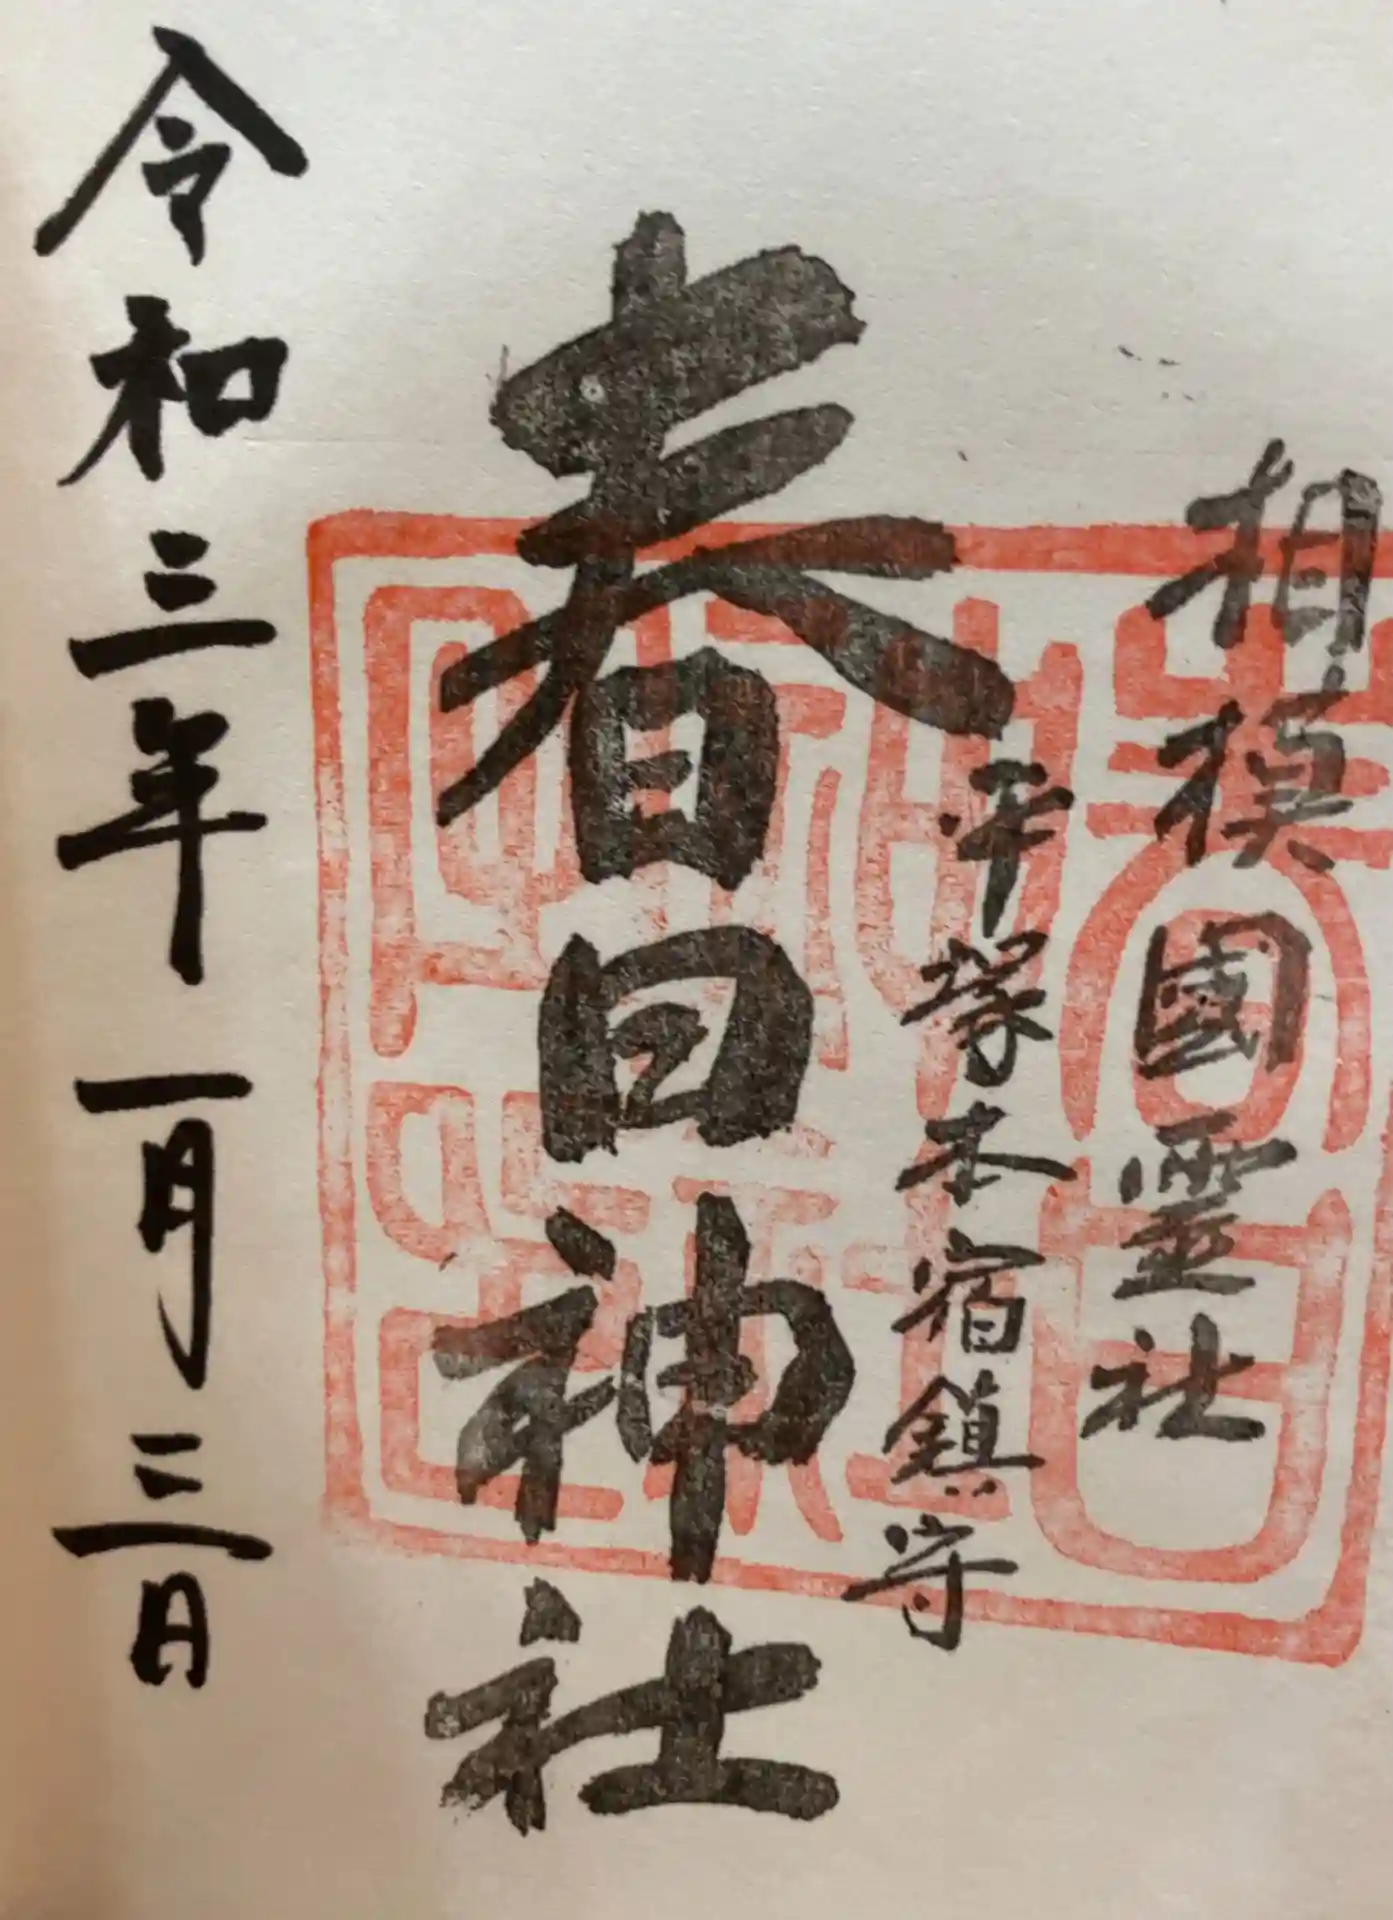 相模國霊社
平塚本宿鎮守
春日神社
令和三年一月三日